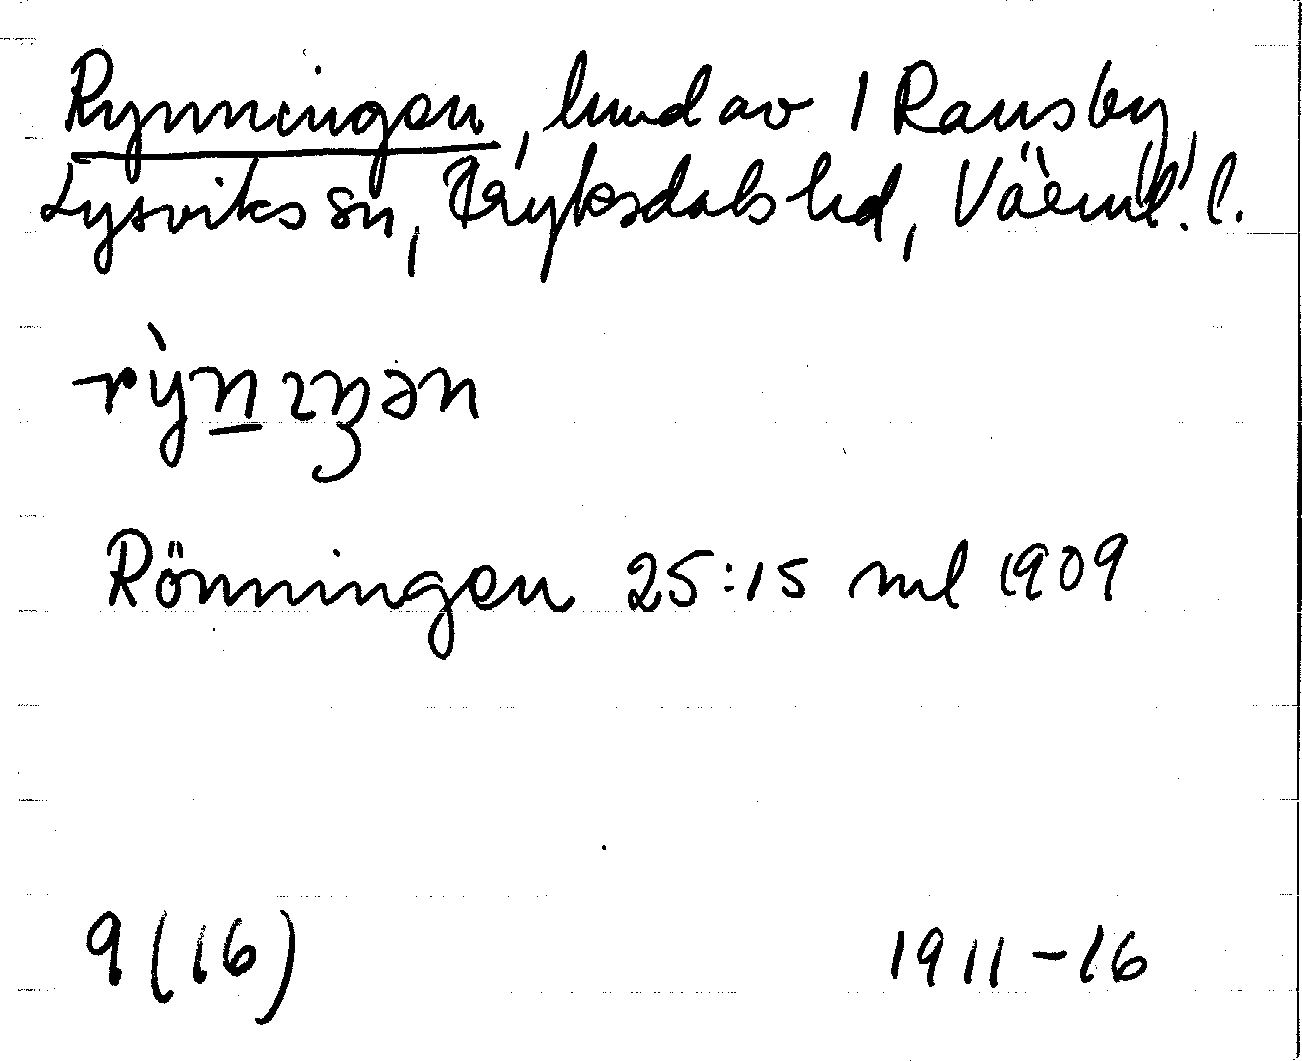 Rynningen, hmd av 1 Ransby,
Lysviks sn, Fryksdals hd, Värml. l.
rỳnıŋən
Rönningen 25:15 ml 1909
9(16) 1911-16